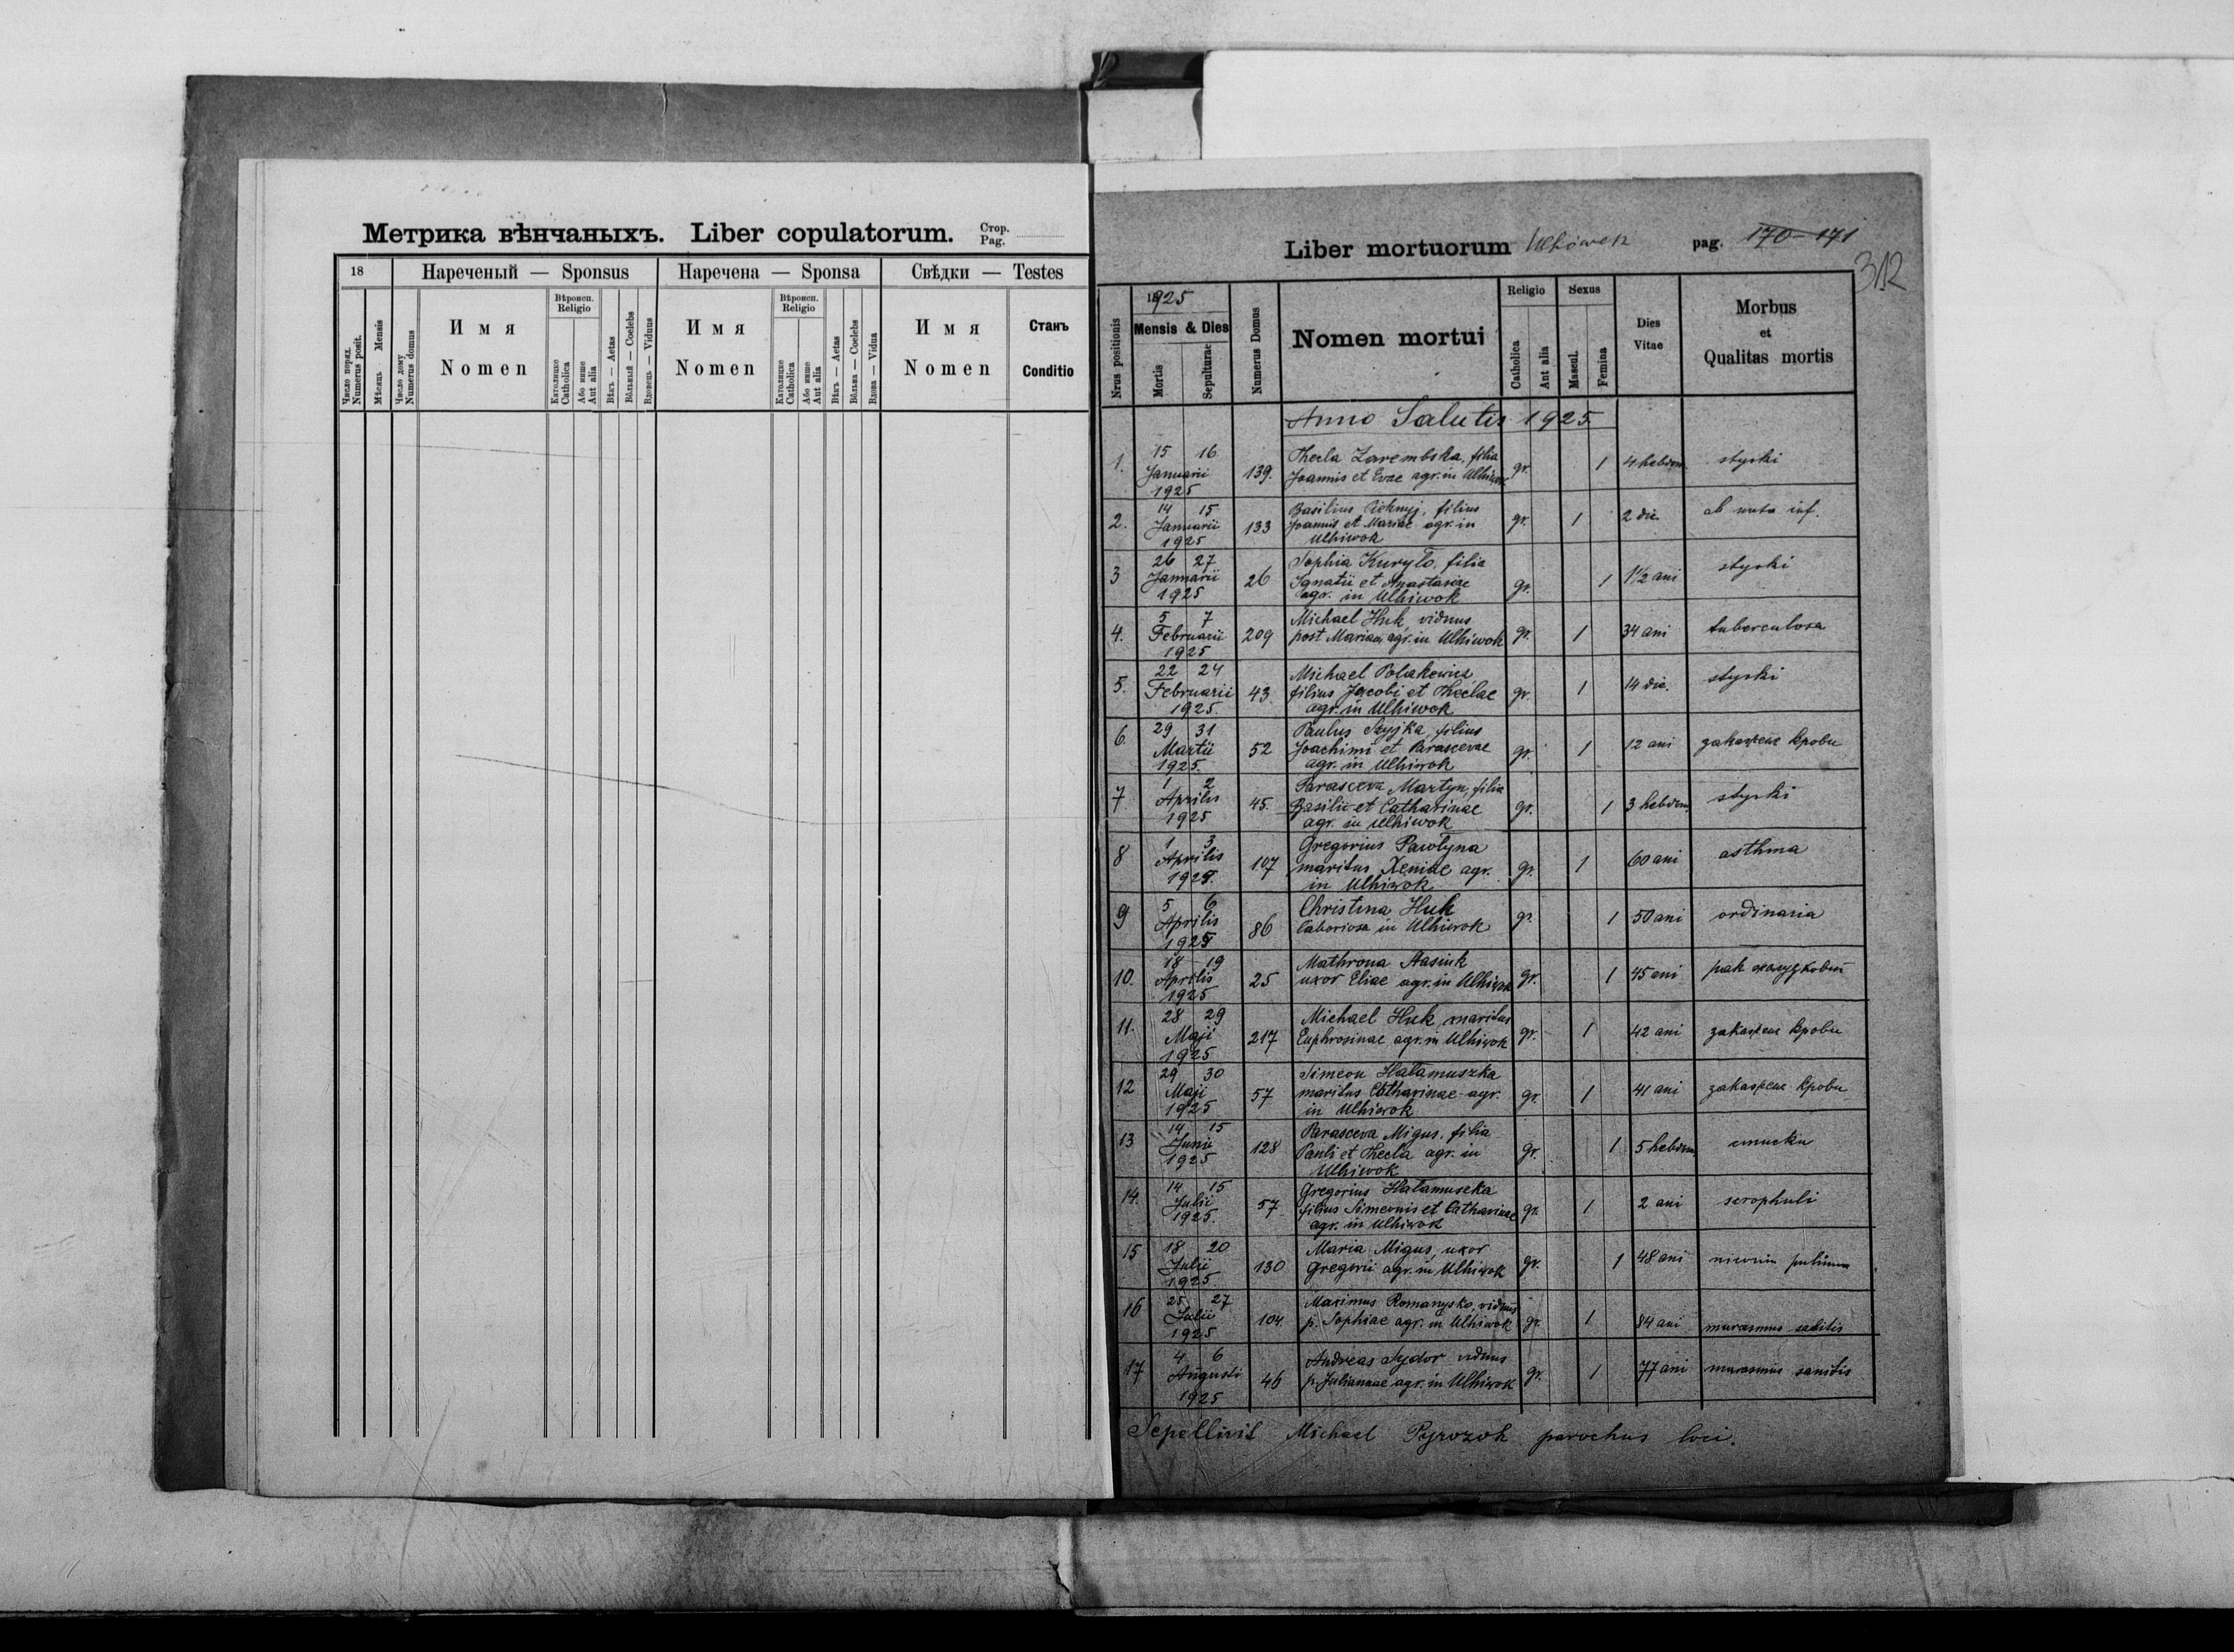 Метрика вѣнчаныхъ. Liber copulatorum. Стор. Pag.
18
Нареченый — Sponsus
Наречена — Sponsa
Свѣдки — Testes
Число поряд. Numerus posit.
Мѣсяць Mensis
Число дому Numerus domus
Имя Nomen
Вѣроисп. Religio
Католицке Catholica
Або инше Aut alia
Вѣкъ — Aetas
Вôльный — Coelebs
Вдовець — Viduus
Имя Nomen
Вѣроисп. Religio
Католицке Catholica
Або инше Aut alia
Вѣкъ — Aetas
Вôльна — Coelebs
Вдова — Vidua
Имя Nomen
Станъ Conditio
Liber mortuorum Ulhówek pag. 170-171
312
Nrus positionis
1925
Mensis & Dies
Mortis
Sepulturae
Numerus Domus
Nomen mortui
Religio
Catholica
Aut alia
Sexus
Mascul.
Femina
Dies Vitae
Morbus et Qualitas mortis
Anno Salutis 1925.
1. 15 16 Januarii 1925 139. Thecla Zarembska, filia
Joannis et Evae agr. in Ulhiwok gr. 1 4 hebdom. styski
2. 14 15 Januarii 1925 133 Basilius filius
Joannis et Mariae agr. in
Ulhiwok gr. 1 2 die.
3 26 27 Januarii 1925 26 Sophia Kuryło, filia
Ignatii et Anastasiae
agr. in Ulhiwok gr. 1 1½ ani styski
4. 5 7 Februarii 1925 209 Michael Huk, viduus
post Mariam agr. in Ulhiwok gr. 1 34 ani tuberculosa
5. 22 24 Februarii 1925. 43 Michael Polakewicz
filius Jacobi et Theclae
agr. in Ulhiwok gr. 1 14 die. styski
6. 29 31 Martii 1925. 52 Paulus Szyjka, filius
Joachimi et Parascevae
agr. in Ulhiwok gr. 1 12 ani закаженє крови
7 1 2 Aprilis 1925 45. Parasceva Martyn, filia
Basilii et Catharinae
agr. in Ulhiwok gr. 1 3 hebdom. styski
8 1 3 Aprilis 1925. 107 Gregorius Pawłyna
maritus Xeniae agr.
in Ulhiwok gr. 1 60 ani asthma
9 5 6 Aprilis 1925 86 Christina Huk
laboriosa in Ulhiwok gr. 1 50 ani ordinaria
10. 18 19 Aprilis 1925 25 Mathrona Stasiuk
uxor Eliae agr. in Ulhiwok gr. 1 45 ani рак
11. 28 29 Maji 1925 217 Michael Huk, maritus
Euphrosinae agr. in Ulhiwok gr. 1 42 ani закаженє крови
12 29 30 Maji 1925 57 Simeon Hałamuszka
maritus Catharinae agr.
in Ulhiwok gr. 1 41 ani закаженє крови
13 14 15 Junii 1925 128 Parasceva Migus, filia
Pauli et Thecla agr. in
Ulhiwok gr. 1 5 hebdom.
14. 14 15 Julii 1925. 57 Gregorius Hałamuszka
filius Simeonis et Catharinae
agr. in Ulhiwok gr. 1 2 ani scrophuli
15 18 20 Julii 1925 130 Maria Migus, uxor
Gregorii agr. in Ulhiwok gr. 1 48 ani
16 25 27 Julii 1925 104. Maximus Romanysko, viduus
p. Sophiae agr. in Ulhiwok gr. 1 84 ani marasmus
17 4 6 Augusti 1925 46 Andreas Sydor viduus
p. Juliannae agr. in Ulhiwok gr. 1 77 ani marasmus
Sepellivit Michael Pyrozok parochus loci.